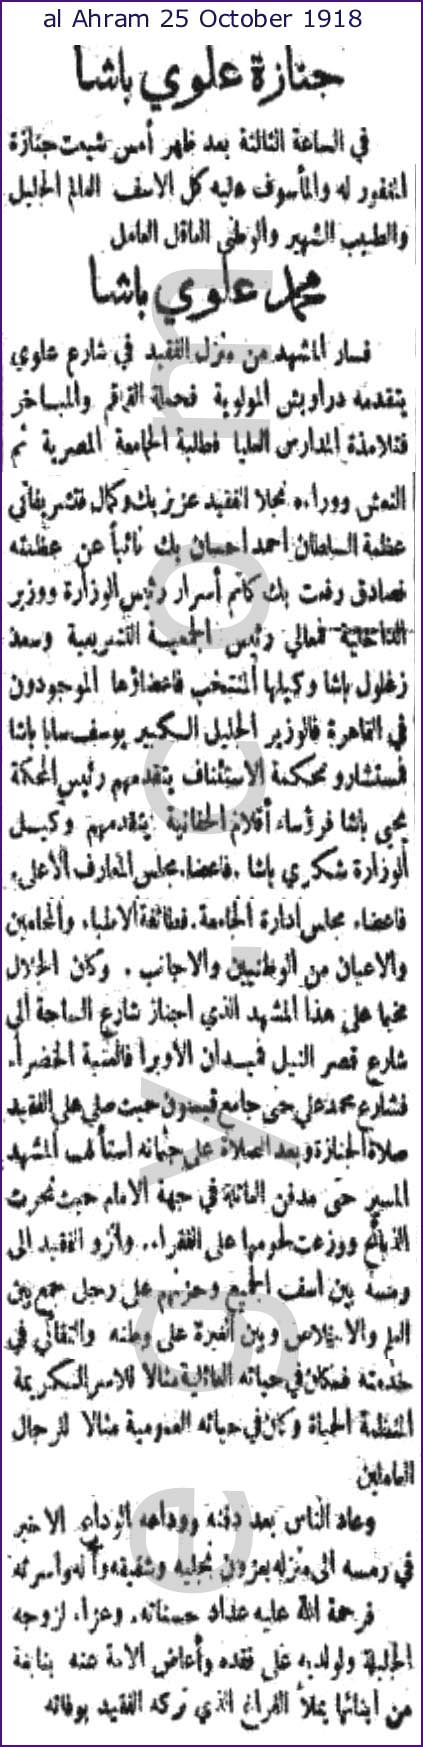 al Ahram 25 October 1918
جنازة علوي باشا
في الساعة الثالثة بعد ظهر أمس شيعت جنازة
المغفور له والمأسوف عليه كل الاسف العالم الجليل
والطبيب الشهير والوطني العاقل العامل
محمد علوي باشا
فسار المشهد من منزل الفقيد في شارع علوي
يتقدمه دراويش المولوية فحملة القماقم والمباخر
فتلامذة المدارس العليا فطلبة الجامعة المصرية ثم
النعش ووراءه نجلا الفقيد عزيز بك وكمال فتشريفاتي
عظمة السلطان احمد احسان بك نائباً عن عظمته
فصادق رفعت بك كاتم أسرار رئيس الوزارة ووزير
الداخلية فمعالي رئيس الجمعية التشريعية وسعد
زغلول باشا وكيلها المنتخب فاعضاؤها الموجودون
في القاهرة فالوزير الجليل الكبير يوسف سابا باشا
فمستشارو محكمة الاستئناف يتقدمهم رئيس المحكمة
يحيى باشا فرؤساء أقلام الحقانية يتقدمهم وكيل
الوزارة شكري باشا . فاعضاء مجلس المعارف الأعلى .
فاعضاء مجلس ادارة الجامعة . فطائفة الاطباء والمحامين
والاعيان من الوطنيين والاجانب . وكان الجلال
مخيما على هذا المشهد الذي اجتاز شارع الساحة الى
شارع قصر النيل فميدان الاوبرا فالعتبة الخضراء
فشارع محمد علي حتى جامع قيسون حيث صلي على الفقيد
صلاة الجنازة وبعد الصلاة على جثمانه استأنف المشهد
المسير حتى مدفن العائلة في جهة الامام حيث نحرت
الذبائح ووزعت لحومها على الفقراء . وأنزل الفقيد الى
رمسه بين أسف الجميع وحزنهم على رجل جمع بين
العلم والاخلاص وبين الغيرة على وطنه والتفاني في
خدمته فكان في حياته العائلية مثالا للاسر الكريمة
المنظمة الحياة وكان في حياته العمومية مثالا للرجال
العاملين
وعاد الناس بعد دفنه ووداعه الوداع الاخير
في رمسه الى منزله يعزون نجليه وشقيقه وآله واسرته
فرحمة الله عليه عداد حسناته . وعزاء لزوجه
الجليلة ولولديه على فقده وأعاض الامة عنه بنابغة
من أبنائها يملأ الفراغ الذي تركه الفقيد بوفاته
egy.com